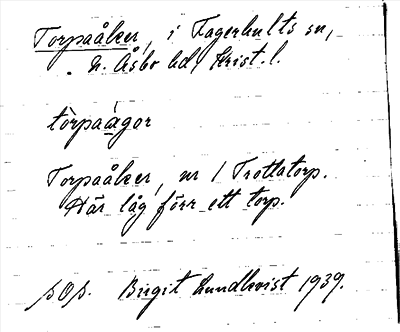 Torpaåker, i Fagerhults sn,
N. Åsbo hd, Krist. l.
tòrpaágor
Torpaåker, nr 1 Trottatorp.
Här låg förr ett torp.
p.O.p. Birgit Lundkvist 1939.